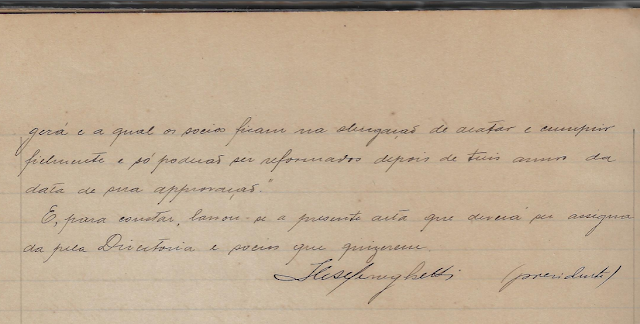 gerá e a qual os socios ficam na obrigação de acatar e cumprir
fielmente e só poderão ser reformados depois de tres annos da
data de sua approvação."
E, para constar, lavrou-se a presente acta que deverá ser assigna
da pela Directoria e socios que quizerem.
(presidente)